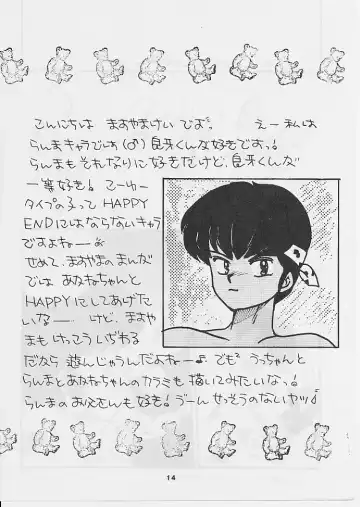 こんにちは ますやまけい でぇす。 えー私は
らんまキャラでは(♂)良牙くんが好きでぇすっ!
らんまもそれなりに好きだけど、良牙くんが
一等好き! てーゆー
タイプの子って HAPPY
ENDにはならないキャラ
ですよねー
せめて、ますやまのまんが
では あかねちゃんと
HAPPYにしてあげた
いなー… けど、ますや
まもけっこういぢわる
だから 遊んじゃうんだよねー♪ でも うっちゃんと
らんまとあかねちゃんのカラミも描いてみたいなっ!
らんまのお父さんも好き! うーん せっそうのないヤツ♪
14